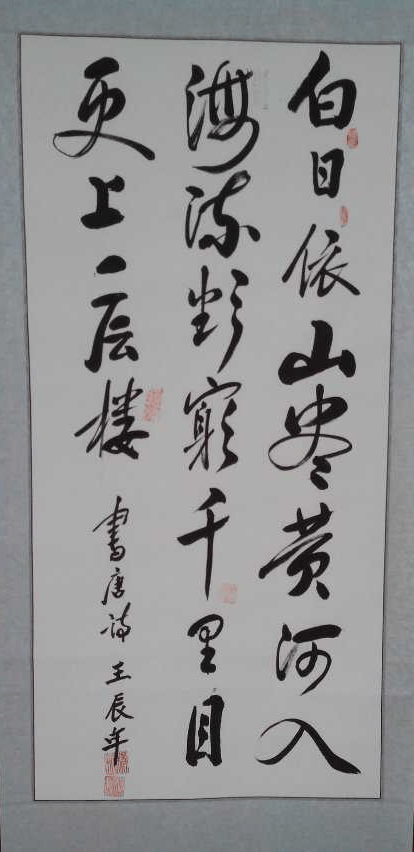 白日依山尽黄河入
海流欲窮千里目
更上一层楼
書唐詩 壬辰年